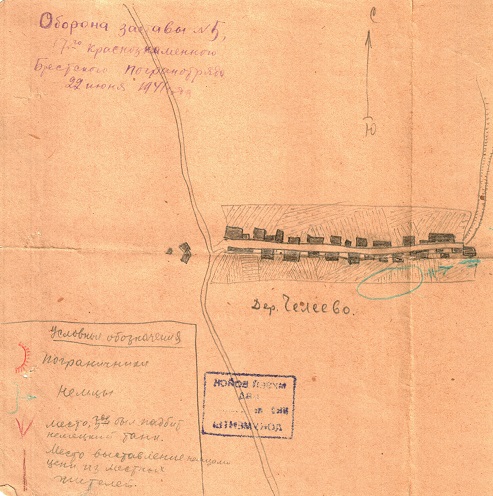 Оборона заставы №5,
17го Краснознаменного
Брестского погранотряда
22 июня 1941 г.
С
Ю
Дер. Челеево.
Условные обозначения
Пограничники
Немцы
место, где был подбит
немецкий танк.
Место выставления немцами
цепи из местных
жителей.